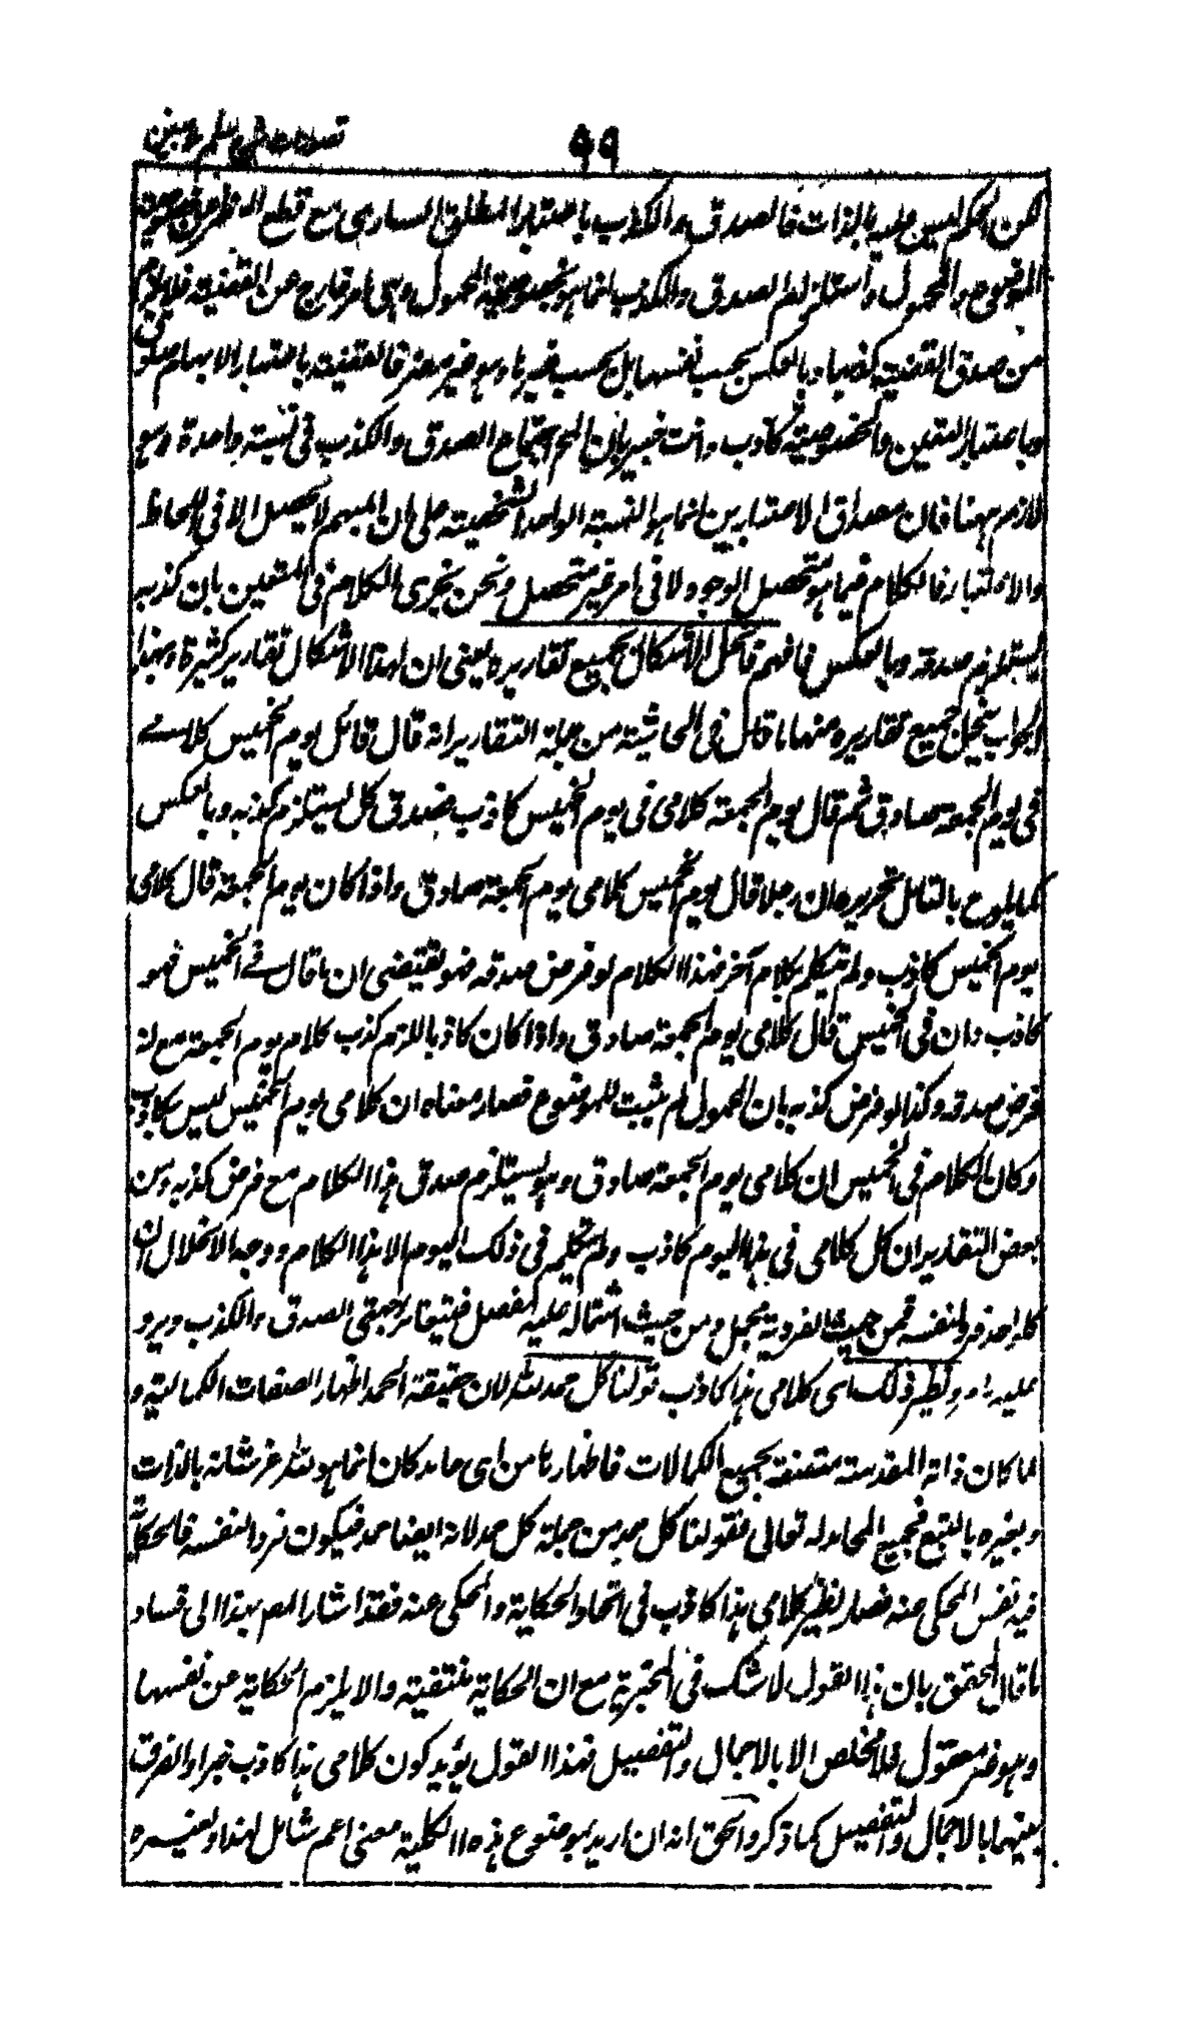 ٩٩
لكن الحكم ليس عليه بالذات فالصدق والكذب باعتبار المطلق الساري مع قطع النظر عن خصوصية
الموضوع والمحمول واستلزام الصدق والكذب انما هو بخصوصية المحمول وهي امر خارج عن القضية فلا يلزم
من صدق القضية كذبها وبالعكس بحسب نفسها بل بحسب غيرها وهو غير مضر فالقضية باعتبار الابهام صادق
وباعتبار التعين والخصوصية كاذب وانت خبير بان اجتماع الصدق والكذب في نسبة واحدة وهو
لازم ههنا فان مصداق الاعتبارين انما هو النسبة الواحدة الشخصية على ان المبهم لا يحصل الا في اللحاظ
والاعتبار فالكلام فيما هو متحصل الوجود لا في امر غير متحصل ونحن نجري الكلام في المتعين بان كذبه
يستلزم صدقه وبالعكس فافهم فانحل الاشكال بجميع تقاريره يعني ان لهذا الاشكال تقارير كثيرة وبهذا
الجواب ينحل جميع تقاريره منها ما قال في الحاشية من جملة التقارير انه قال قائل يوم الخميس كلامي
في يوم الجمعة صادق ثم قال يوم الجمعة كلامي في يوم الخميس كاذب فصدق كل يستلزم كذبه وبالعكس
كما يلوح بالتامل تحريره ان رجلا قال يوم الخميس كلامي يوم الجمعة صادق واذا كان يوم الجمعة قال كلامي
يوم الخميس كاذب ولم يتكلم بكلام آخر فهذا الكلام لو فرض صدقه فهو يقتضي ان ما قال في الخميس فهو
كاذب وان في الخميس قال كلامي يوم الجمعة صادق واذا كان كاذبا لزم كذب كلام يوم الجمعة مع انه
فرض صدقه وكذا لو فرض كذبه بان المحمول لم يثبت للموضوع فصار معناه ان كلامي يوم الخميس ليس بكاذب
وكان الكلام في الخميس ان كلامي يوم الجمعة صادق وهو يستلزم صدق هذا الكلام مع فرض كذبه ومن
بعض التقارير ان كل كلامي في هذا اليوم كاذب ولم يتكلم في ذلك اليوم الا هذا الكلام ووجه الانحلال ان
كلها حد فرد لنفسه فمن حيث الفردية مجمل ومن حيث اشتماله عليه مفصل فيتغاير جهتي الصدق والكذب ويرد
عليه ونظير ذلك اي كلامي هذا كاذب قولنا كل حمد لله لان حقيقة الحمد اظهار الصفات الكمالية و
لما كان ذاته المقدسة متصفة بجميع الكمالات فاظهارها من اي حامد كان انما هو لله عز شانه بالذات
ولغيره بالتبع فجميع المحامد له تعالى فقولنا كل حمد من جملة كل حمد لانه ايضا حمد فيكون فردا لنفسه فالحكاية
فيه نفس المحكي عنه فصار نظير كلامي هذا كاذب في اتحاد الحكاية والمحكي عنه فقد اشار المصه بهذا الى فساد
ما قال المحقق بان هذا القول لا شك في الخبرية مع ان الحكاية منتفية والا يلزم الحكاية عن نفسها
وهو غير معقول فلا مخلص الا بالاجمال والتفصيل فهذا القول يؤيد كون كلامي هذا كاذب خبرا والفرق
بينهما بالاجمال والتفصيل كما ذكر والحق انه ان اريد بموضوع هذه الكلية معنى اعم شامل لهذا ولغيره